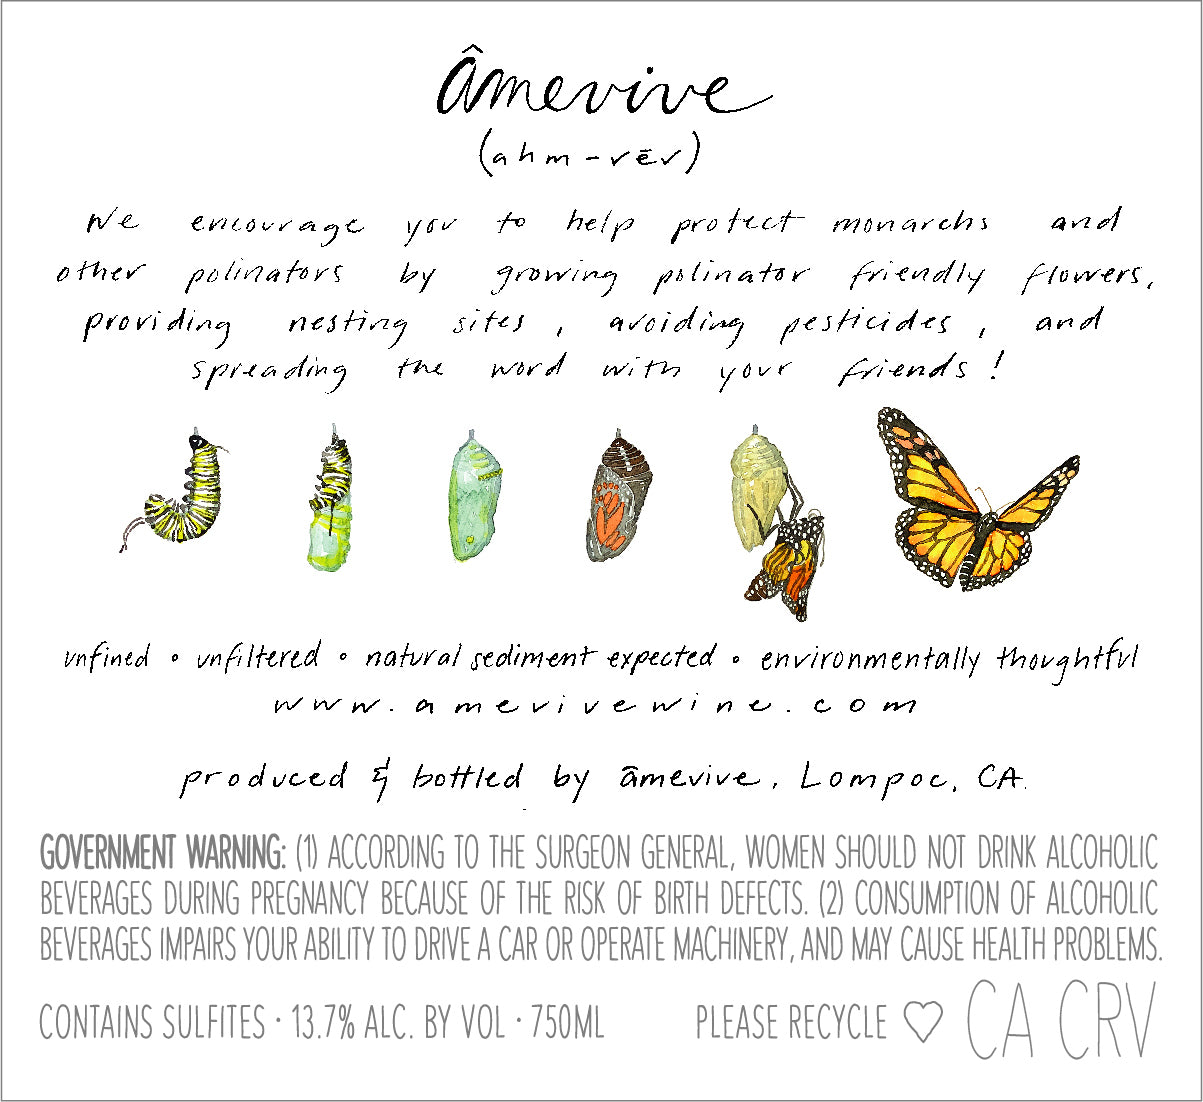 âmevive
(ahm-vēv)
We encourage you to help protect monarchs and
other polinators by growing polinator friendly flowers,
providing nesting sites, avoiding pesticides, and
spreading the word with your friends!
unfined • unfiltered • natural sediment expected • environmentally thoughtful
www.amevivewine.com
produced & bottled by āmevive, Lompoc, CA.
GOVERNMENT WARNING: (1) ACCORDING TO THE SURGEON GENERAL, WOMEN SHOULD NOT DRINK ALCOHOLIC
BEVERAGES DURING PREGNANCY BECAUSE OF THE RISK OF BIRTH DEFECTS. (2) CONSUMPTION OF ALCOHOLIC
BEVERAGES IMPAIRS YOUR ABILITY TO DRIVE A CAR OR OPERATE MACHINERY, AND MAY CAUSE HEALTH PROBLEMS.
CONTAINS SULFITES · 13.7% ALC. BY VOL · 750ML PLEASE RECYCLE ♡ CA CRV